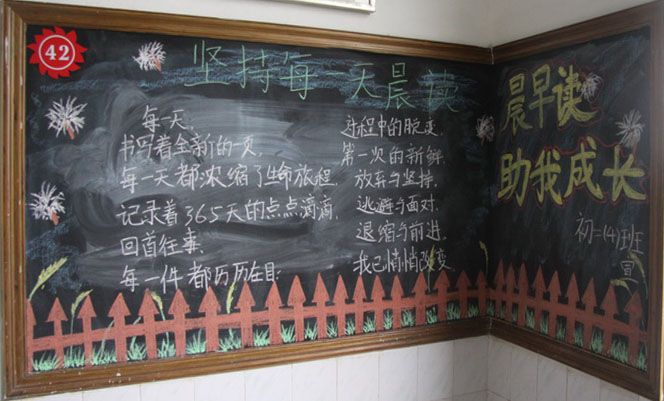 42
坚持每一天晨读
每一天,
书写着全新的一页,
每一天都浓缩了生命旅程,
记录着365天的点点滴滴,
回首往事,
每一件都历历在目:
过程中的脱变,
第一次的新鲜,
放弃与坚持,
逃避与面对,
退缩与前进,
我已悄悄改变。
晨早读
助我成长
初二(4)班
宣